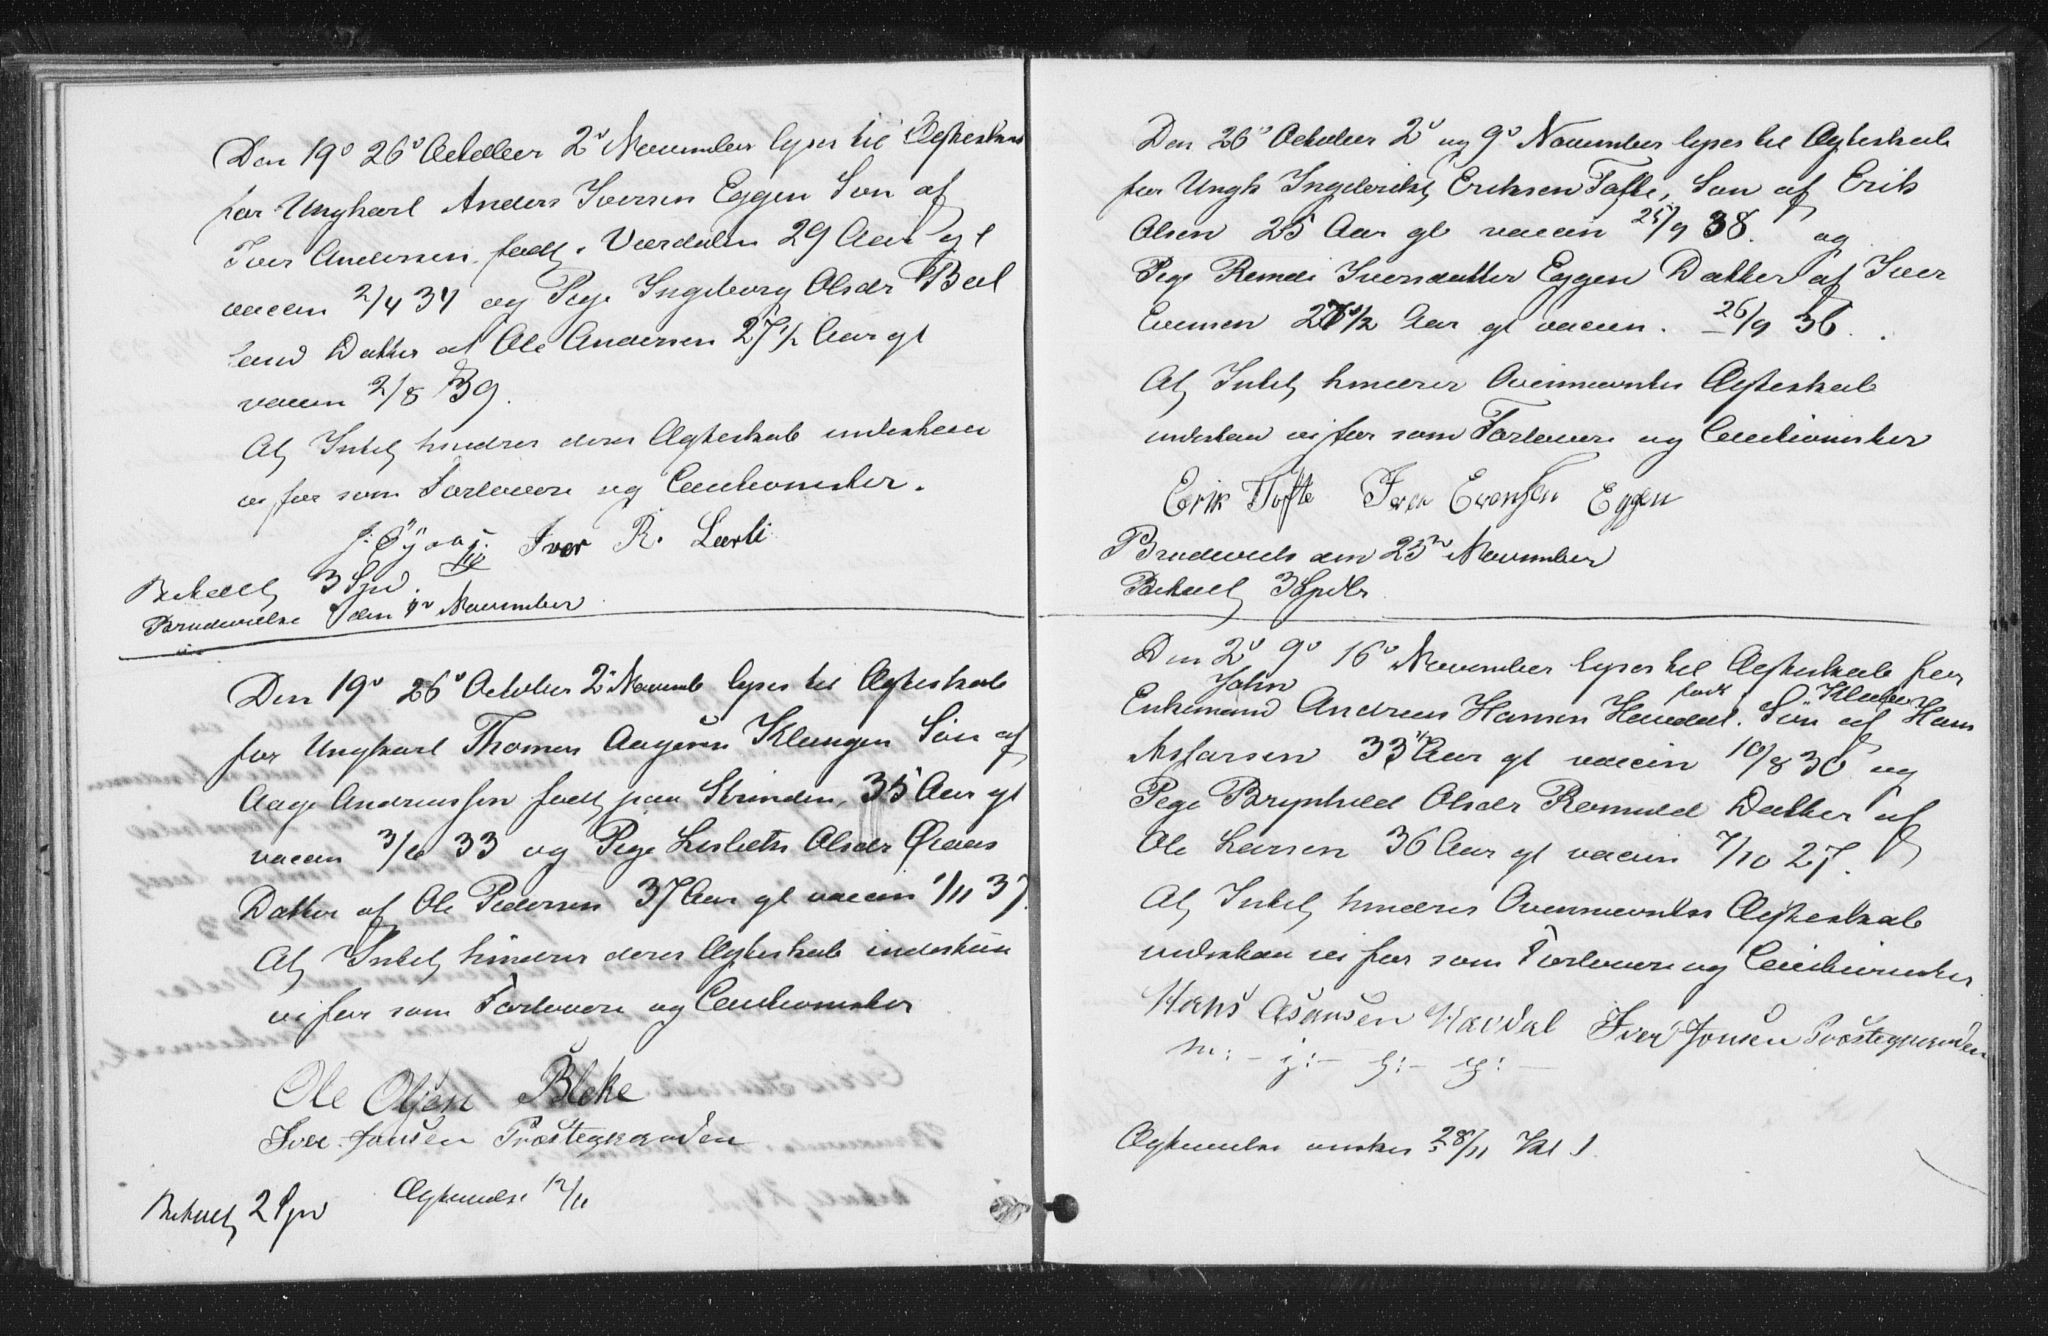 Den 19de 26de October 2de November lyses til Ægteskab
for Ungkarl Anders Iversen Eggen Søn af
Iver Andersen, født i Værdalen 29 Aar gl
vaccin 2/4 34 og Pige Ingeborg Olsdr Bel
land Datter af Ole Andersen 27 1/2 Aar gl
vaccin 2/8 39.
At Intet hindrer deres Ægteskab indestaaer
vi for som Forlovere og Cautionister.
Iver R. Lærli
Betalt 3 Spd.
Brudevielse den November
Den 19de 26de October 2de Novemb lyses til Ægteskab
for Ungkarl Thomas Aagesen Klungen Søn af
Aage Andreassen født paa Strinden, 35 Aar gl
vaccin 33 og Pige Lisbeth Olsdr Øraas
Datter af Ole Pedersen 37 Aar gl vaccin 1/11 37.
At Intet hindrer deres Ægteskab indestaa
vi for som Forlovere og Cautionister
Ole Olsen Bleke
Iver Jonsen Præstegaarden
Betalt 2 Spd Ægtevielse 12/11
Den 26de October 2de og 9de November lyses til Ægteskab
for Ungk Ingebrikt Eriksen Tofte, Søn af Erik
Olsen 25 Aar gl vaccin 25/9 38. og
Pige Remdi Iversdatter Eggen Datter af Iver
Evensen 27 1/2 Aar gl vaccin. 26/9 36.
At Intet hindrer Ovennævntes Ægteskab
indestaa vi for som Forlovere og Cautionister
Erik Tofte Iver Evensen Eggen
Brudeviels den 23de November
Betalt 3 Spdlr
Den 2de 9de 16de November lyses til Ægteskab for
John født Klæbu
Enkemand Andreas Hansen Havdal. Søn af Hans
Asparsen 33 Aar gl vaccin 10/8 30 og
Pige Brynhild Olsdr Romuld Datter af
Ole Larsen 36 Aar gl vaccin 7/10 27.
At Intet hindrer Ovennævntes Ægteskab
indestaa vi for som Forlovere og Cautionister
Hans Asansen Havdal Iver Jonsen Præstegaarden
m:- i:- h:- p:-
Ægtevielse ønskes 28/11 Kl 1.